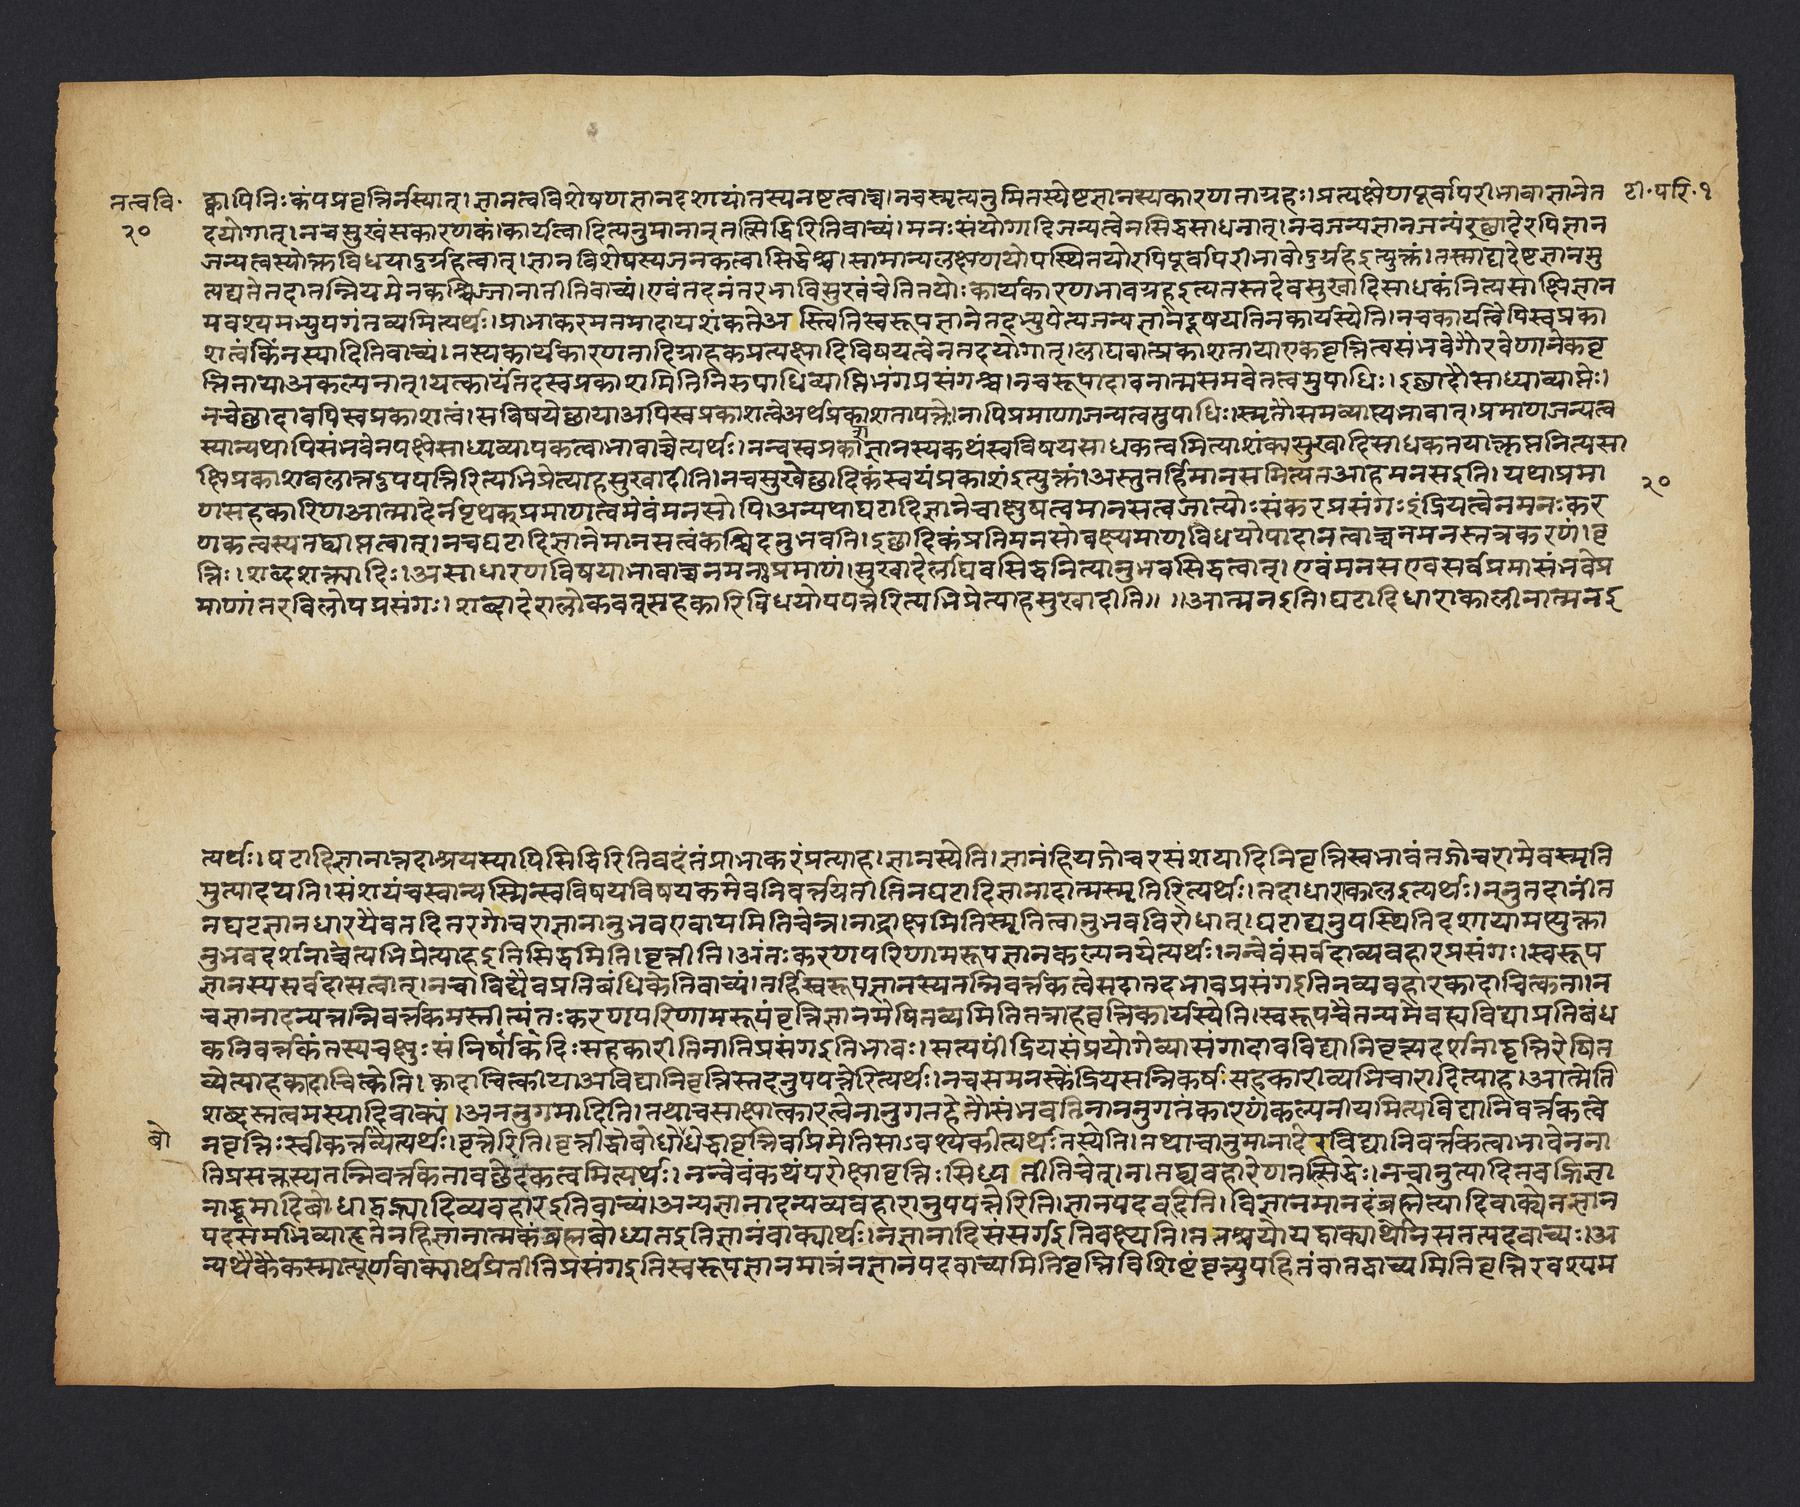 तत्वविः
२०
टी·परि·१
क्वापिनिःकंपप्रवृत्तिर्नस्यात्।ज्ञानत्वविशेषणज्ञानदशायांतस्यनष्टत्वाच्च।नचस्मृत्यनुमितस्येष्टज्ञानस्यकारणताग्रहः।प्रत्यक्षेणपूर्वापरीभावाज्ञानेत
दयोगात्।नचसुखंसकारणकं।कार्यत्वादित्यनुमानात्तत्सिद्धिरितिवाच्यं।मनःसंयोगादिजन्यत्वेनसिद्धसाधनात्।नचजन्यज्ञानजन्यंइछादेरपिज्ञान
जन्यत्वस्योक्तविधयादुर्ग्रहत्वात्।ज्ञानविशेषस्यजनकत्वासिद्धेश्च।सामान्यलक्षणयोपस्थितयोरपिपूर्वापरीभावोदुर्ग्रहइत्युक्तं।तस्माद्यदेष्टज्ञानमु
त्पद्यतेतदातन्नियमेनकश्चिज्जानातीतिवाच्यं।एवंतदनंतरभाविसुखंचेतितयोःकार्यकारणभावग्रहइत्यतस्तदेवसुखादिसाधकंनित्यसाक्षिज्ञान
मवश्यमभ्युपगंतव्यमित्यर्थः।प्राभाकरमतमादायशंकतेअस्त्वितिस्वरूपज्ञानेतदभ्युपेत्यजन्यज्ञानंदूषयतिनकार्यस्येति।नचकार्यत्वेपिस्वप्रका
शत्वंकिंनस्यादितिवाच्यं।तस्यकार्यकारणतादिग्राहकप्रत्यक्षादिविषयत्वेनतदयोगात्।लाघवात्प्रकाशतायाएकवृत्तित्वसंभवेगौरवेणानेकवृ
त्तितायाअकल्पनात्।यत्कार्यंतदस्वप्रकाशमितिनिरुपाधिव्याप्तिभंगप्रसंगश्च।नचरूपादावनात्मसमवेतत्वमुपाधिः।इछादौसाध्याव्याप्तेः।
नचेछादावपिस्वप्रकाशत्वं।सविषयेछायाअपिस्वप्रकाशत्वेअर्थप्रकाशतापत्तेः।नापिप्रमाणाजन्यत्वमुपाधिः।स्मृतौसमव्याप्त्यभावात्।प्रमाणजन्यत्व
स्यान्यथापिसंभवेनपक्षेसाध्यव्यापकत्वाभावाच्चेत्यर्थः।नन्वस्वप्रकाशज्ञानस्यकथंस्वविषयसाधकत्वमित्याशंक्यसुखादिसाधकतयाक्लृप्तनित्यसा
क्षिप्रकाशबलात्तदुपपत्तिरित्यभिप्रेत्याहसुखादीति।नचसुखेछादिकंस्वयंप्रकाशंइत्युक्तं।अस्तुतर्हिमानसमित्यतआहमनसइति।यथाप्रमा
२०
णसहकारिणआत्मादेर्नपृथक्प्रमाणत्वमेवंमनसोपि।अन्यथाघटादिज्ञानेचाक्षुषत्वमानसत्वजात्योःसंकरप्रसंगःइंद्रियत्वेनमनःकर
णकत्वस्यतद्व्याप्तत्वात्।नचघटादिज्ञानेमानसत्वंकश्चिदनुभवति।इछादिकंप्रतिमनसोवक्ष्यमाणविधयोपादानत्वाच्चनमनस्तत्रकरणं।वृ
त्तिः।शब्दशक्त्यादिः।असाधारणविषयाभावाच्चनमनःप्रमाणं।सुखादेर्लाघवसिद्धनित्यानुभवसिद्धत्वात्।एवंमनसएवसर्वप्रमासंभवेप्र
माणांतरविलोपप्रसंगः।शब्दादेरालोकवत्सहकारिविधयोपपत्तेरित्यभिप्रेत्याहसुखादीति॥ ॥आत्मनइति।घटादिधाराकालीनात्मनइ
त्यर्थः।घटादिज्ञानात्तदाश्रयस्यापिसिद्धिरितिवदंतंप्राभाकरंप्रत्याह।ज्ञानस्येति।ज्ञानंहियद्गोचरसंशयादिनिवृत्तिस्वभावंतद्गोचरामेवस्मृति
मुत्पादयति।संशयंचस्वान्यस्मिन्स्वविषयविषयकमेवनिवर्त्तयतीतिनघटादिज्ञानादात्मस्मृतिरित्यर्थः।तदाधाराकालइत्यर्थः।ननुतदानींत
नघटज्ञानधारयैवतदितरगोचराज्ञानानुभवएवायमितिचेन्न।नाद्राक्षमितिस्मृतित्वानुभवविरोधात्।घटाद्यनुपस्थितिदशायामप्युक्ता
नुभवदर्शनाच्चेत्यभिप्रेत्याहइतिसिद्धमिति।वृत्तीति।अंतःकरणपरिणामरूपज्ञानकल्पनयेत्यर्थः।नन्वेवंसर्वदाव्यवहारप्रसंगः।स्वरूप
ज्ञानस्यसर्वदासत्वात्।नचाविद्यैवप्रतिबंधिकेतिवाच्यं।तर्हिस्वरूपज्ञानस्यतन्निवर्त्तकत्वेसदातदभावप्रसंगइतिनव्यवहारकादाचित्कता।न
चज्ञानादन्यत्तन्निवर्त्तकमस्तीत्यंतःकरणपरिणामरूपंवृत्तिज्ञानमेषितव्यमितितत्राहवृत्तिकार्यस्येति।स्वरूपचैतन्यमेवह्यविद्याप्रतिबंध
कनिवर्त्तकंतस्यचक्षुःसंनिर्षकादिःसहकारीतिनातिप्रसंगइतिभावः।सत्यपींद्रियसंप्रयोगेव्यासंगादावविद्यानिवृत्त्यदर्शनाद्वृत्तिरेषित
व्येत्याहकादाचित्केति।कादाचित्कीयाअविद्यानिवृत्तिस्तदनुपपत्तेरित्यर्थः।नचसमनस्केंद्रियसन्निकर्षःसहकारीव्यभिचारादित्याह।आत्मेति
शब्दस्तत्वमस्यादिवाक्यं।अननुगमादिति।तथाचसाक्षात्कारत्वेनानुगतहेतौसंभवतिनाननुगतंकारणंकल्पनीयमित्यविद्यानिवर्त्तकत्वे
बो
नवृत्तिःस्वीकर्त्तव्येत्यर्थः।वृत्तेरिति।वृत्तीद्धाबोधोधेद्धावृत्तिर्वाप्रमेतिसाऽवश्यकीत्यर्थःतस्येति।तथाचानुमानादेरविद्यानिवर्त्तकत्वाभावेनना
तिप्रसक्तस्यतन्निवर्त्तकतावछेदकत्वमित्यर्थः।नन्वेवंकथंपरोक्षावृत्तिःसिध्यतीतिचेत्।न।तद्व्यवहारेणतत्सिद्धेः।नचानुत्पादितवह्निज्ञा
नाद्धूमादिबोधाद्वह्न्यादिव्यवहारइतिवाच्यं।अन्यज्ञानादन्यव्यवहारानुपपत्तेरिति।ज्ञानपदवदिति।विज्ञानमानंदंब्रह्मेत्यादिवाक्येनज्ञान
पदसमभिव्याहृतेनहिज्ञानात्मकंब्रह्मबोध्यतइतिज्ञानंवाक्यार्थः।नज्ञानादिसंसर्गइतिवक्ष्यति।ततश्चयोयद्वाक्यार्थोनसतत्पदवाच्यः।अ
न्यथैकैकस्मात्पूर्णवाक्यार्थप्रतीतिप्रसंगइतिस्वरूपज्ञानमात्रंनज्ञानपदवाच्यमितिवृत्तिविशिष्टंवृत्त्युपहितंवातद्वाच्यमितिवृत्तिरवश्यम